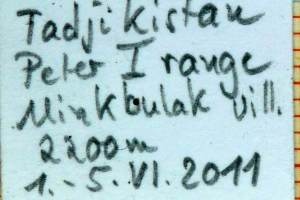 Tadjikistan
Peter I range
Minkbulak vill.
2200m
1.-5.VI.2011